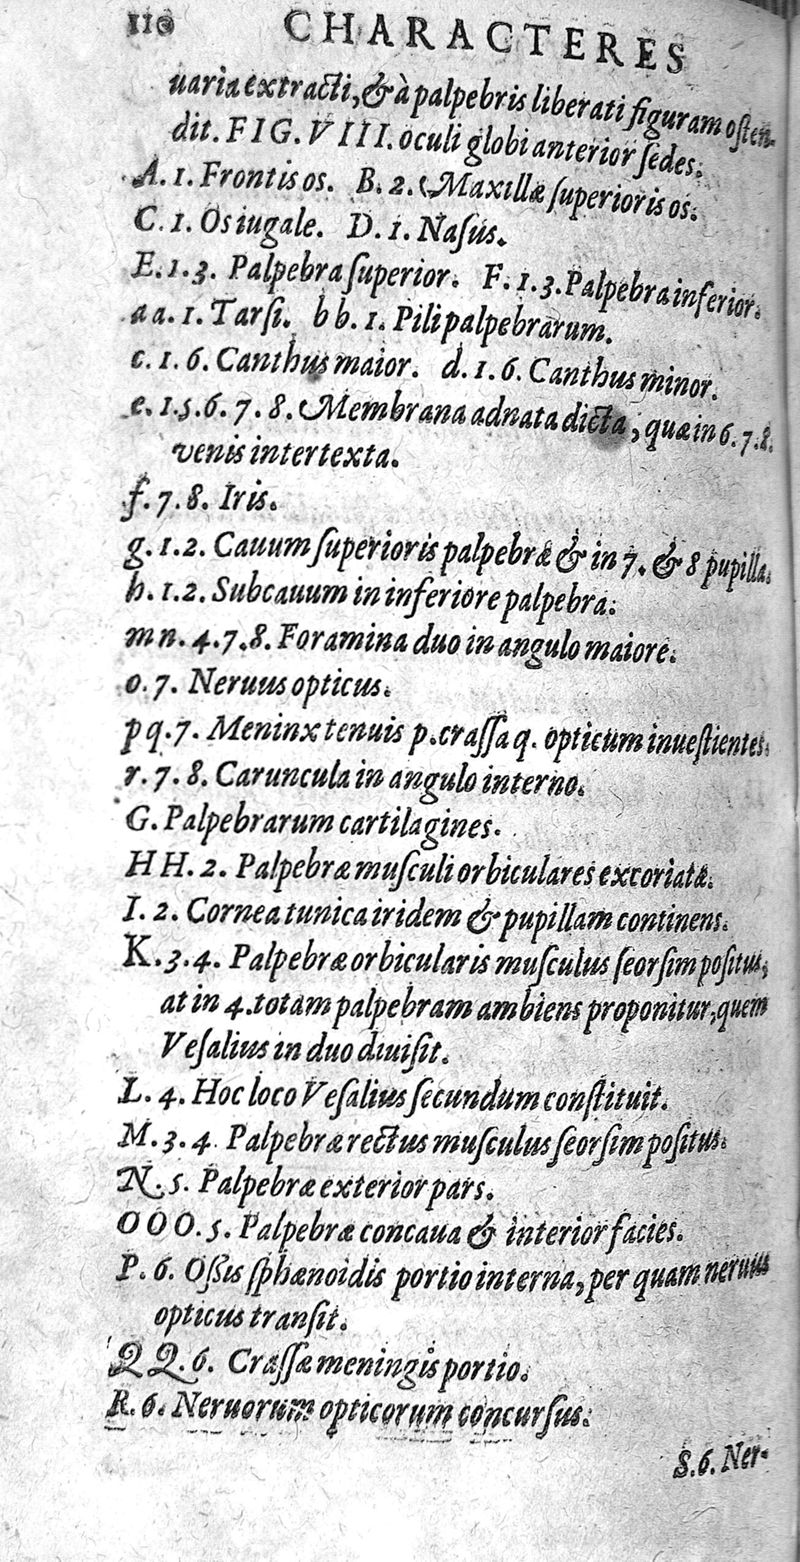 110 CHARACTERES
uaria extracti, & à palpebris liberati figuram osten-
dit. FIG. VIII. oculi globi anterior sedes.
A. 1. Frontis os. B. 2. Maxillæ superioris os.
C. 1. Os iugale. D. 1. Nasus.
E. 1. 3. Palpebra superior. F. 1. 3. Palpebra inferior.
a a. 1. Tarsi. b b. 1. Pili palpebrarum.
c. 1. 6. Canthus maior. d. 1. 6. Canthus minor.
e. 1. 5. 6. 7. 8. Membrana adnata dicta, quæ in 6. 7. 8.
venis intertexta.
f. 7. 8. Iris.
g. 1. 2. Cauum superioris palpebræ & in 7. & 8 pupilla.
h. 1. 2. Subcauum in inferiore palpebra.
m n. 4. 7. 8. Foramina duo in angulo maiore.
o. 7. Neruus opticus.
p q. 7. Meninx tenuis p. crassa q. opticum inuestientes.
r. 7. 8. Caruncula in angulo interno.
G. Palpebrarum cartilagines.
H H. 2. Palpebræ musculi orbiculares excoriatæ.
I. 2. Cornea tunica iridem & pupillam continens.
K. 3. 4. Palpebræ orbicularis musculus seorsim positus,
at in 4. totam palpebram ambiens proponitur, quem
Vesalius in duo diuisit.
L. 4. Hoc loco Vesalius secundum constituit.
M. 3. 4. Palpebræ rectus musculus seorsim positus.
N. 5. Palpebræ exterior pars.
O O O. 5. Palpebræ concaua & interior facies.
P. 6. Ossis sphænoidis portio interna, per quam neruus
opticus transit.
Q Q. 6. Crassæ meningis portio.
R. 6. Neruorum opticorum concursus.
S. 6. Ner-